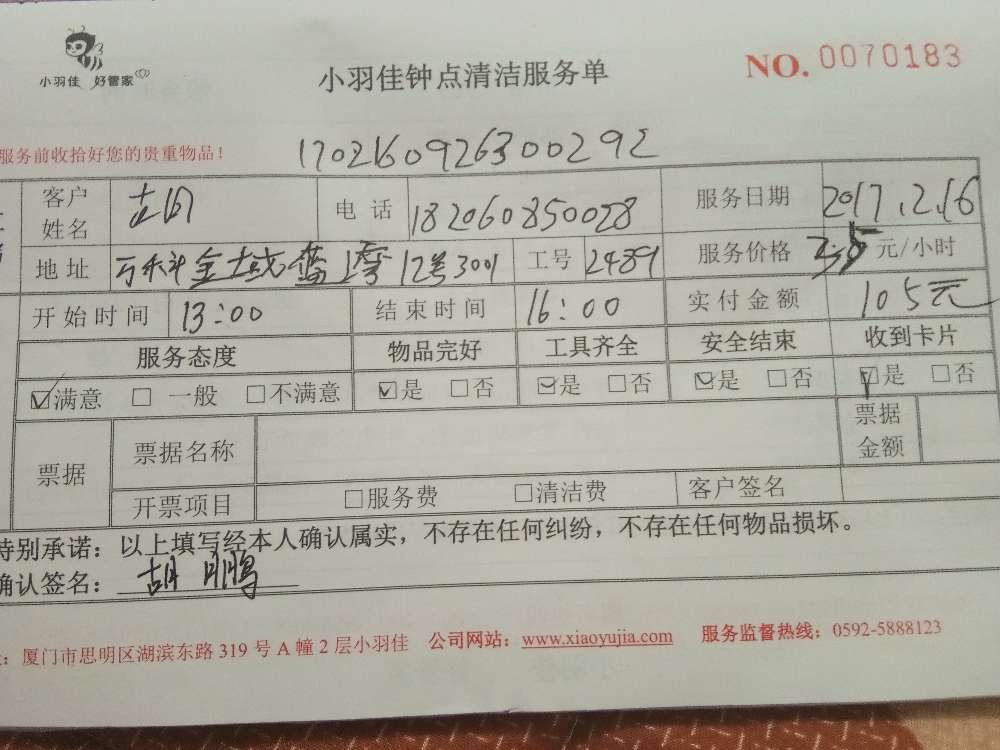 小羽佳 好管家
小羽佳钟点清洁服务单
NO. 0070183
服务前收拾好您的贵重物品！
1702160926300292
客户姓名 电话 182060850028 服务日期 2017.2.16
地址 万科金域蓝湾12号3001 工号 2489 服务价格 35 元/小时
开始时间 13:00 结束时间 16:00 实付金额 105元
服务态度 物品完好 工具齐全 安全结束 收到卡片
☑满意 □ 一般 □不满意 ☑是 □否 ☑是 □否 ☑是 □否 ☑是 □否
票据 票据名称 票据金额
开票项目 □服务费 □清洁费 客户签名
特别承诺：以上填写经本人确认属实，不存在任何纠纷，不存在任何物品损坏。
确认签名： 胡鹏
厦门市思明区湖滨东路 319 号 A 幢 2 层小羽佳 公司网站：www.xiaoyujia.com 服务监督热线：0592-5888123